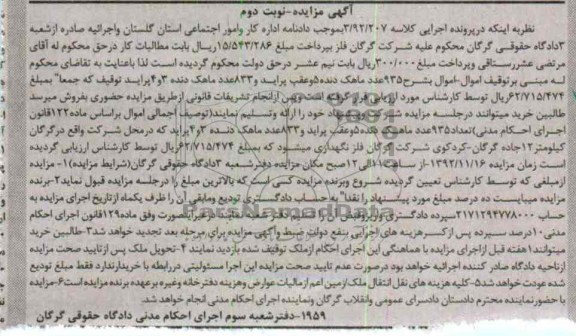 آگهی مزایده-نوبت دوم
نظربه اینکه درپرونده اجرایی کلاسه ۳/۹۲/۲۰۷بموجب دادنامه اداره کار وامور اجتماعی استان گلستان واجرائیه صادره ازشعبه
۳دادگاه حقوقی گرگان محکوم علیه شرکت گرگان فلز بپرداخت مبلغ ۱۵/۵۴۳/۲۸۶ریـال بابت مطالبات کار درحق محکوم له آقای
مرتضی عشررستاقی وپرداخت مبلغ ۳۰۰/۰۰۰ریال بابت نیم عشـر درحق دولت محکوم گردیده اسـت لذا باعنایت به تقاضای محکوم
لـه مبنـی برتوقیف اموال-اموال بشرح۹۳۵عدد ماهک دنده۵وعقب پراید و۸۳۳عدد ماهک دنده ۳و۴پراید توقیف که جمعا" بمبلغ
۶۲/۷۱۵/۴۷۴ریال توسط کارشناس مورد ارزیابی قرار گرفته است وپس ازانجام تشریفات قانونی ازطریق مزایده حضوری بفروش میرسد
طالبین خرید میتوانند درجلسـه مزایده شرکت و پیشنهاد خود را ارائه وتسلیم نمایند(توصیف اجمالی اموال براساس ماده۱۲۲قانون
اجرای احـکام مدنی)تعداد۹۳۵عدد ماهک دنده۵وعقب پراید و۸۳۳عدد ماهک دنـده ۳و۴پراید که درمحل شرکت واقع درگرگان
کیلومتر۱۲جاده گرگان-کردکوی شرکت گرگان فلز نگهداری میشـود که بمبلغ ۶۲/۷۱۵/۴۷۴ریال توسط کارشناس ارزیابی گردیده
است زمان مزایده ۱۳۹۲/۱۱/۱۶-از ساعت۱۱الی۱۲صبح مکان مزایده دفترشـعبه ۳دادگاه حقوقی گرگان(شرایط مزایده)۱- مزایده
ازمبلغی که توسـط کارشناس تعیین گردیده شروع وبرنده مزایده کسـی است که بالاترین مبلغ را درجلسه مزایده قبول نماید۲-برنده
مزایده میبایست ده درصد مبلغ مورد پیشـنهاد را نقدا" به حساب دادگسـتری تودیع ومابقی آن را ظرف یکماه ازتاریخ اجرای مزایده به
حساب ۲۱۷۱۲۹۴۷۷۸۰۰۰سپرده دادگستری
مدنی ۱۰درصد سپرده پس ازکسرهزینه های اجرایی بنفع دولت ضبط وآگهی مزایده برای مرحله بعد تجدید خواهد شد۳-طالبین خرید
میتوانند۱هفته قبل ازاجرای مزایده با هماهنگی این اجرای احکام ازملک توقیف شده بازدید نمایند ۴-تحویل ملک پس ازتایید صحت مزایده
ازناحیه دادگاه صادر کننده اجرائیه خواهد بود درصورت عدم تایید صحت مزایده این اجرا مسئولیتی دررابطه با خریدارندارد فقط مبلغ تودیع
شده عودت خواهدشد۵-کلیه هزینه های نقل انتقال ملک ازمین اعم ازمالیات عوارض وهزینه دفترخانه وغیره برعهده برنده مزایده است۶-مزایده
با حضورنماینده محترم دادستان دادسرای عمومی وانقلاب گرگان ونماینده اجرای احکام مدنی انجام خواهد شد.
۱۹۵۹-دفترشعبه سوم اجرای احکام مدنی دادگاه حقوقی گرگان